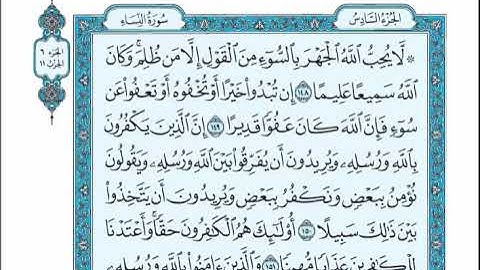 الجُزْءُ السَّادِسُ
سُورَةُ النِّسَاءِ
الجزء ٦
الحزب ١١
۞ لَّا يُحِبُّ ٱللَّهُ ٱلۡجَهۡرَ بِٱلسُّوٓءِ مِنَ ٱلۡقَوۡلِ إِلَّا مَن ظُلِمَۚ وَكَانَ
ٱللَّهُ سَمِيعًا عَلِيمًا ١٤٨ إِن تُبۡدُواْ خَيۡرًا أَوۡ تُخۡفُوهُ أَوۡ تَعۡفُواْ عَن
سُوٓءٖ فَإِنَّ ٱللَّهَ كَانَ عَفُوّٗا قَدِيرًا ١٤٩ إِنَّ ٱلَّذِينَ يَكۡفُرُونَ
بِٱللَّهِ وَرُسُلِهِۦ وَيُرِيدُونَ أَن يُفَرِّقُواْ بَيۡنَ ٱللَّهِ وَرُسُلِهِۦ وَيَقُولُونَ
نُؤۡمِنُ بِبَعۡضٖ وَنَكۡفُرُ بِبَعۡضٖ وَيُرِيدُونَ أَن يَتَّخِذُواْ
بَيۡنَ ذَٰلِكَ سَبِيلًا ١٥٠ أُوْلَٰٓئِكَ هُمُ ٱلۡكَٰفِرُونَ حَقّٗاۚ وَأَعۡتَدۡنَا
لِلۡكَٰفِرِينَ عَذَابٗا مُّهِينٗا ١٥١ وَٱلَّذِينَ ءَامَنُواْ بِٱللَّهِ وَرُسُلِهِۦ